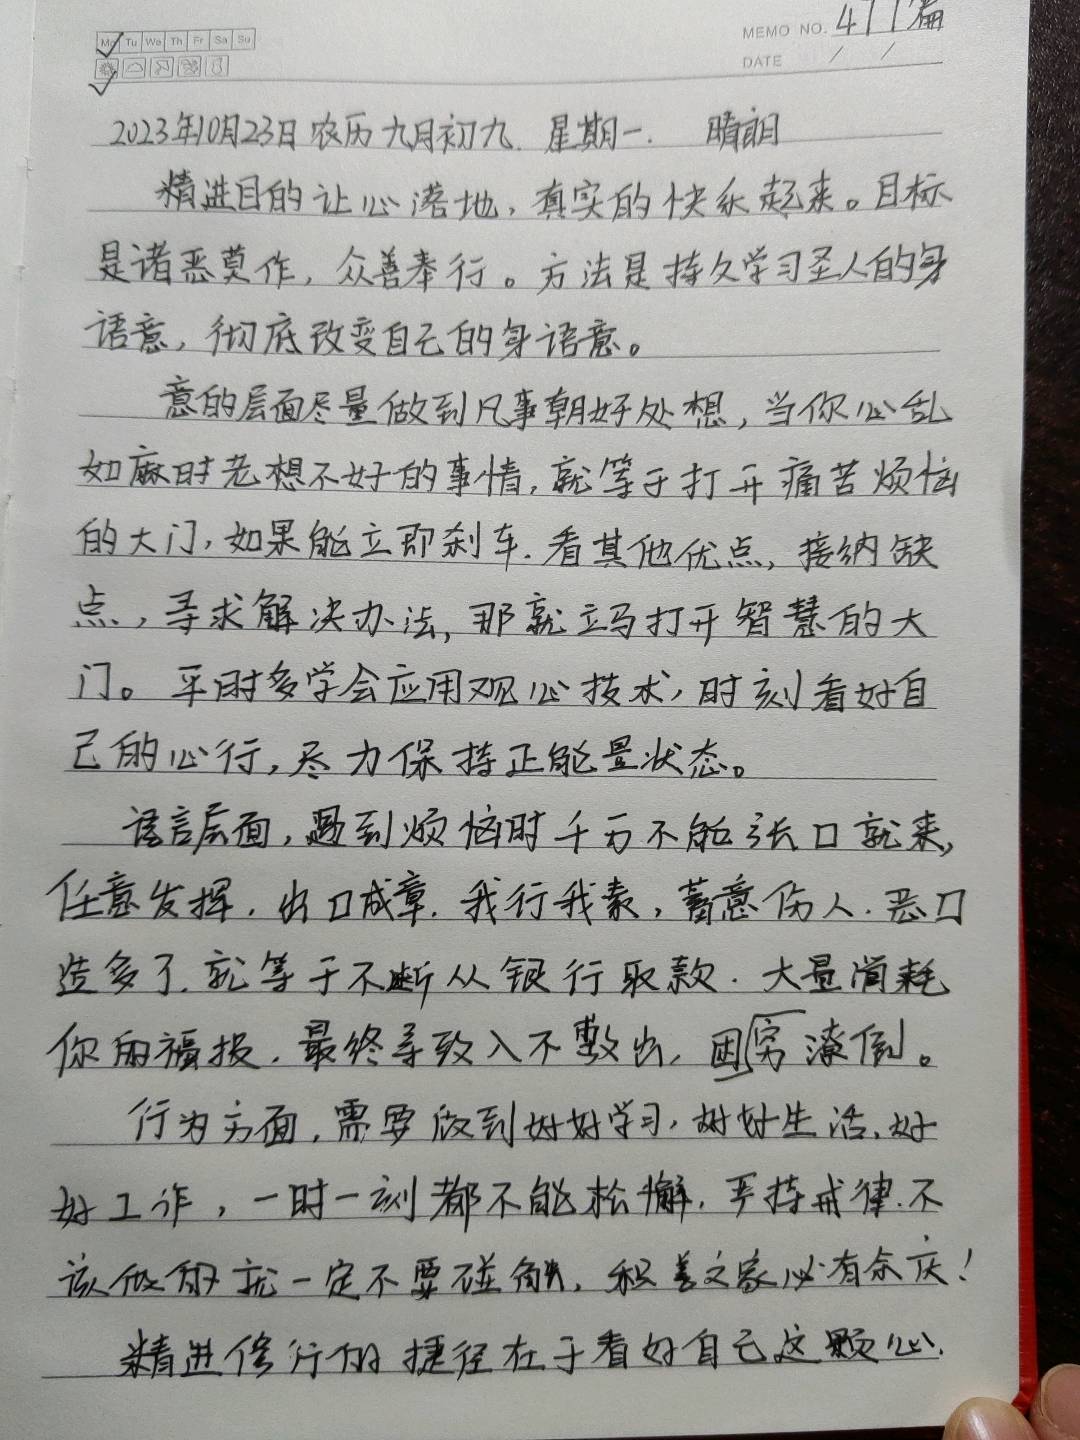 Mo Tu We Th Fr Sa Su
MEMO NO. 477篇
DATE / /
2023年10月23日 农历九月初九. 星期一. 晴朗
精进目的让心落地，真实的快乐起来。目标
是诸恶莫作，众善奉行。方法是持久学习圣人的身
语意，彻底改变自己的身语意。
意的层面尽量做到凡事朝好处想，当你心乱
如麻时老想不好的事情，就等于打开痛苦烦恼
的大门，如果能立即刹车.看其他优点，接纳缺
点，寻求解决办法，那就立马打开智慧的大
门。平时多学会应用观心技术，时刻看好自
己的心行，尽力保持正能量状态。
语言层面，遇到烦恼时千万不能张口就来，
任意发挥.出口成章.我行我素，蓄意伤人.恶口
造多了.就等于不断从银行取款.大量消耗
你的福报.最终导致入不敷出，困穷潦倒。
行为方面，需要做到好好学习，好好生活，好
好工作，一时一刻都不能松懈.严持戒律.不
该做的就一定不要碰触，积善之家必有余庆！
精进修行的捷径在于看好自己这颗心.